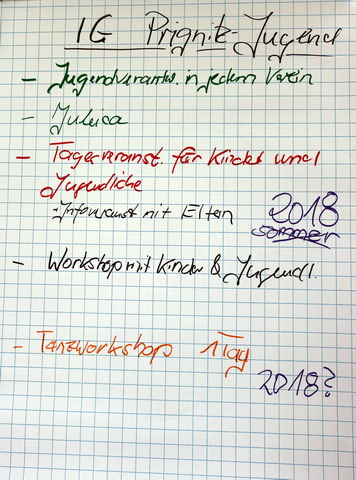 IG Prignitz-Jugend
- Jugendverantw. in jedem Verein
- Juleica
- Tagesveranst. für Kinder und
Jugendliche
- Infoveranst mit Eltern 2018
sommer
- Workshop mit Kinder & Jugendl.
- Tanzworkshop 1 Tag
2018?